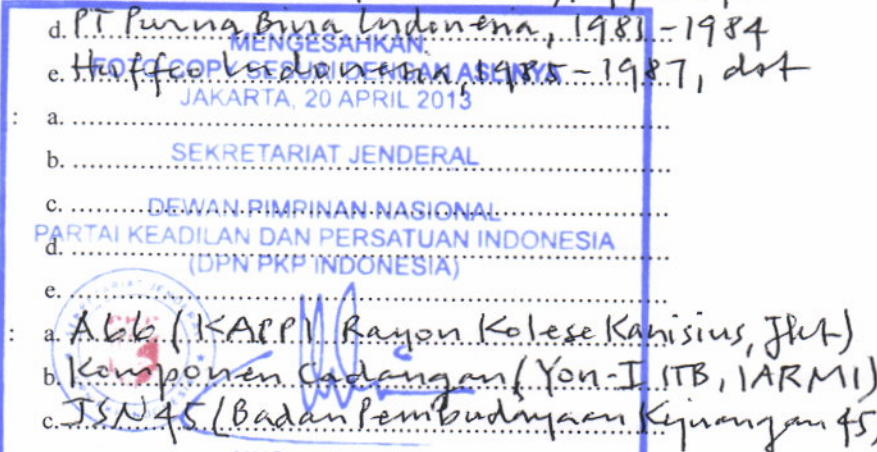 d. PT Purna Bina Indonesia, 1981-1984
MENGESAHKAN
e. Huffco Indonesia, 1985-1987, dst
FOTO COPY SESUAI DENGAN ASLINYA
JAKARTA, 20 APRIL 2013
: a.
b.
SEKRETARIAT JENDERAL
c.
DEWAN PIMPINAN NASIONAL
PARTAI KEADILAN DAN PERSATUAN INDONESIA
d.
(DPN PKP INDONESIA)
e.
: a. A66 (KAPPI Rayon Kolese Kanisius, Jkt)
b. Komponen Cadangan (Yon-I ITB, IARMI)
c. JSN45 (Badan Pembudayaan Kejuangan 45,